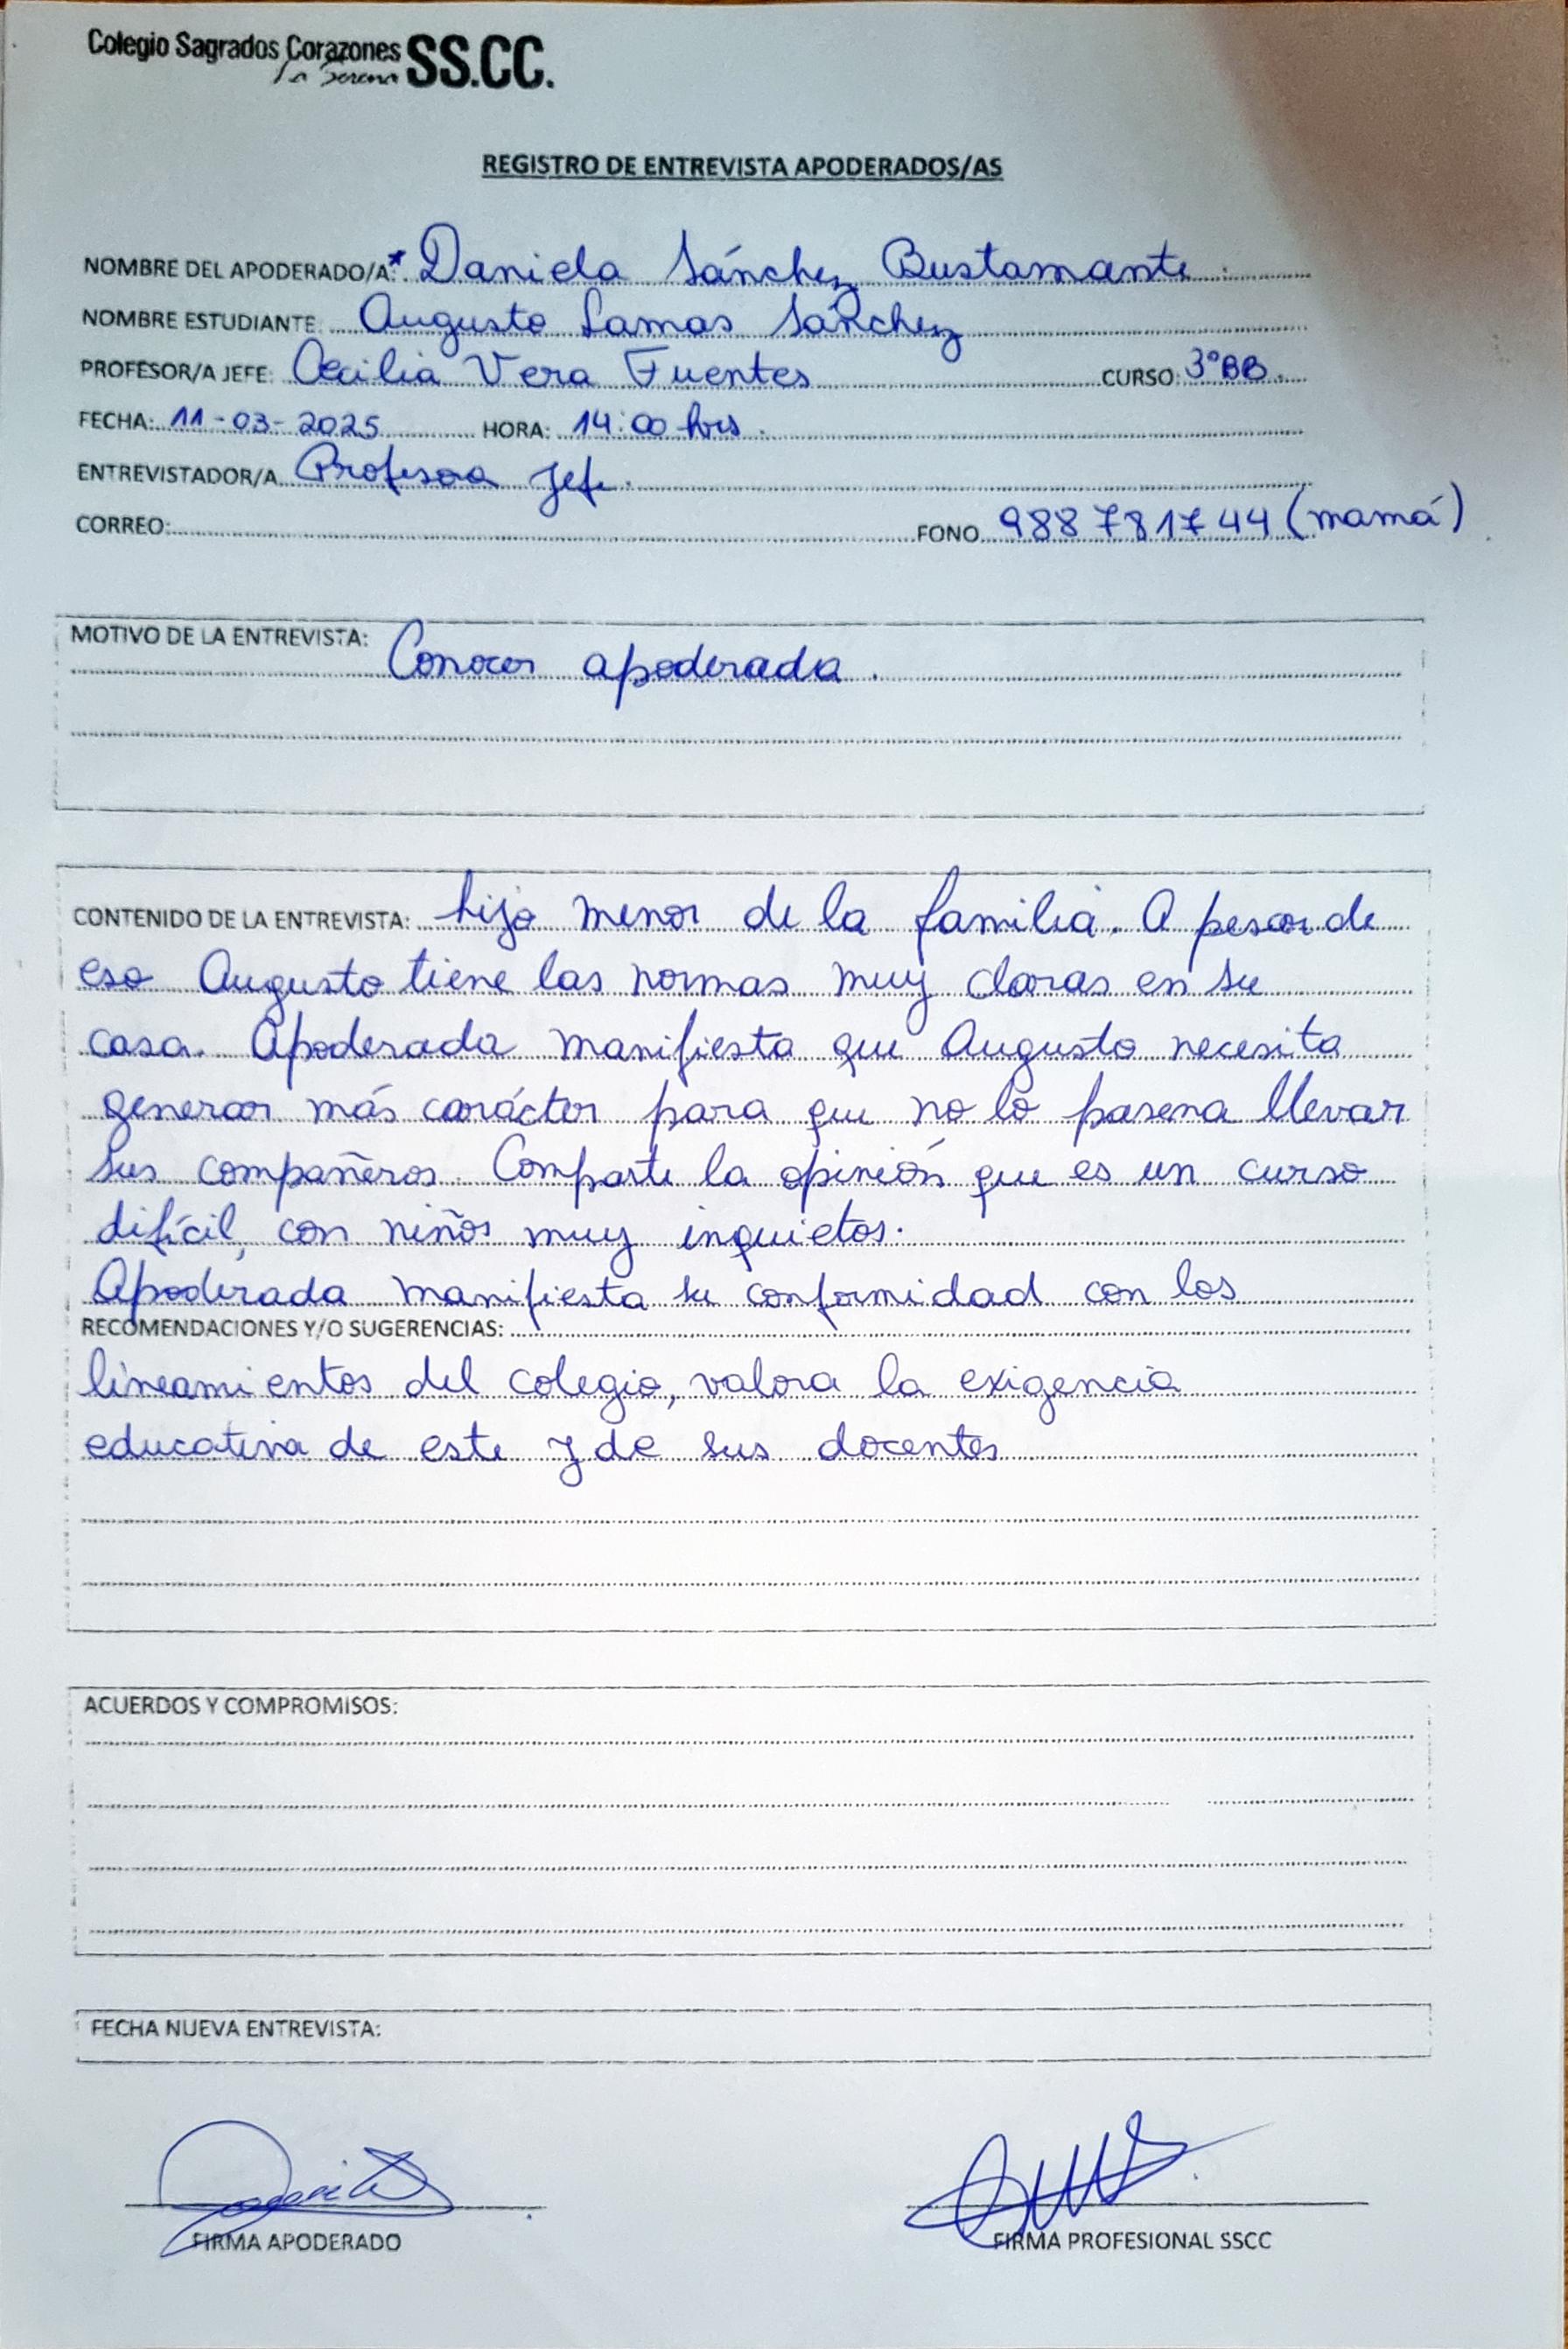 Colegio Sagrados Corazones SS.CC.
La Serena
REGISTRO DE ENTREVISTA APODERADOS/AS
NOMBRE DEL APODERADO/A*: Daniela Sánchez Bustamante.
NOMBRE ESTUDIANTE: Augusto Lamas Sánchez
PROFESOR/A JEFE: Cecilia Vera Fuentes CURSO: 3°BB.
FECHA: 11-03-2025 HORA: 14:00 hrs.
ENTREVISTADOR/A Profesora Jefe.
CORREO: FONO 988781744 (mamá)
MOTIVO DE LA ENTREVISTA: Conocer apoderada.
CONTENIDO DE LA ENTREVISTA: hijo menor de la familia. A pesar de
eso Augusto tiene las normas muy claras en su
casa. Apoderada manifiesta que Augusto necesita
generar más carácter para que no lo pasena llevar
sus compañeros. Comparte la opinión que es un curso
difícil, con niños muy inquietos.
Apoderada manifiesta su conformidad con los
RECOMENDACIONES Y/O SUGERENCIAS:
lineamientos del colegio, valora la exigencia
educativa de este y de sus docentes
ACUERDOS Y COMPROMISOS:
FECHA NUEVA ENTREVISTA:
FIRMA APODERADO FIRMA PROFESIONAL SSCC